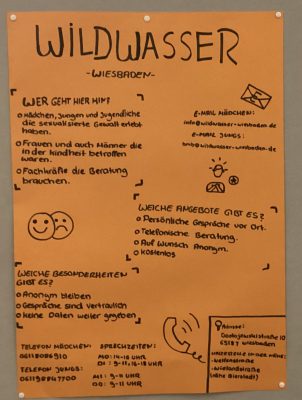 WILDWASSER
- WIESBADEN -
WER GEHT HIER HIN?
Mädchen, Jungen und Jugendliche
die sexualisierte Gewalt erlebt
haben.
Frauen und auch Männer die
in der kindheit betroffen
waren.
Fachkräfte die Beratung
brauchen.
E-MAIL MÄDCHEN:
info@wildwasser-wiesbaden.de
E-MAIL JUNGS:
@wildwasser-wiesbaden.de
WELCHE ANGEBOTE GIBT ES?
Persönliche Gespräche vor Ort.
Telefonische Beratung.
Auf Wunsch Anonym.
Kostenlos
WELCHE BESONDERHEITEN
GIBT ES?
Anonym bleiben
Gespräche sind vertraulich
keine Daten weiter gegeben
TELEFON MÄDCHEN:
0611808619
TELEFON JUNGS:
SPRECHZEITEN:
MO: 14-16 UHR
DI: 9-11, 16-18 UHR
MI: 9-11 UHR
DO: 9-11 UHR
Adresse:
10
65187 Wiesbaden
IN DER NÄHE: